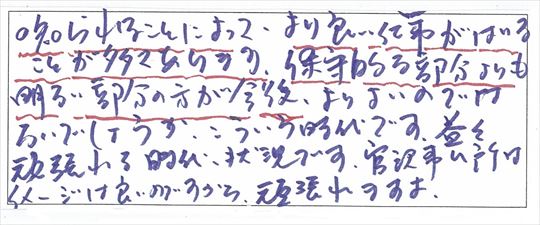 の知られることによって、より良い仕事がはいる
ことが多くなります。保守的な部分よりも
明るい部分の方が今後、よりよいのでは
ないでしょうか。こういう時代です。益々
頑張れる時代、状況です。官沢事ム所は
イメージは良いのですから、頑張れますよ。